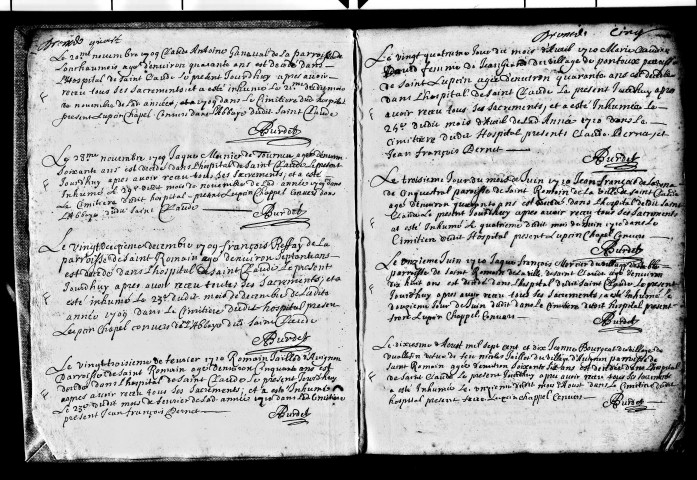 Le 20me novembre 1709 Claude Antoine Ganaval de la parroisse de
Louhaumois agé denviron quarante ans est decedé dans
L'hospital de Saint Claude Le present Jourdhuy apres avoir
receu tous ses Sacrements et a esté inhumé Le
novembre de Lad année 1709 dans le Cimitiere dud. Hospital
present Lupein Chapel Convers dans L'Abbaye dudit Saint Claude
Burdet
Le 28me novembre 1709 Jaque Monnier de Tournu agé denviron
Soixante ans est decedé dans L'hospital de Saint Claude Le present
Jourdhuy apres avoir receu tous ses Sacrements, et a esté
Inhumé Le 29e dudit mois de novembre de Lad année 1709 dans
Le Cimitiere dudit hospital present Lupein Chappel Convers dans
L'Abbaye dudit Saint Claude
Burdet
Le vingt decembre 1709 François Reffay de La
parroisse de Saint Romain agé denviron Septante ans
est decedé dans L'hospital de Saint Claude Le present
Jourdhuy apres avoir receu toutes ses Sacrements, et a
esté inhumé Le 23e dudit mois de decembre de Ladite
année 1709 dans le Cimitiere dudit hospital present
Lupein Chapel convers de L'Abbaye de Saint Claude
Burdet
Le vingt troisieme de fevrier 1710 Romain Paillod d'Avignon
Parroisse de Saint Romain agé denviron Cinquante ans est
decedé dans L'hospital de Saint Claude Le present Jourdhuy
apres avoir receu tous ses Sacrements, et a esté Inhumé
Le 25e dudit mois de fevrier de Lad. année 1710 dans Led. Cimitiere
present Jean François Bernet
Burdet
Cinq
Le vingt quatrieme Jour du mois d'Avril 1710 Marie Claudine
David femme de Jean du village de pontoux parroisse
de Saint Lupein agée denviron quarante ans est decedée
dans L'hospital de Saint Claude Le present Jourdhuy apres
avoir receu tous ses Sacrements, et a esté Inhumée Le
25e dudit mois d'Avril de Lad Année 1710 dans La
Cimitiere dudit Hospital presents Claude Bernet et
Jean François Bernet
Burdet
Le troisieme Jour du mois de Juin 1710 Jean François de Lavena
de Cinquestral parroisse de Saint Romain de la ville de Saint Claude
agé denviron quarante ans est decedé dans L'hospital de dit Saint
Claude Le present Jourdhuy apres avoir receu tous ses Sacrements
et a esté Inhumé Le quatrieme dudit mois de Juin 1710 dans Le
Cimitiere dudit Hospital present Lupein Chapel Convers
Burdet
Le onzieme Juin 1710 Jaque François Mercier du village
parroisse de Saint Romain de la ville de Saint Claude agé denviron
dix huit ans est decedé dans L'hospital dudit Saint Claude Le present
Jourdhuy apres avoir receu tous ses Sacrements a esté Inhumé Le
douzieme Jour de Juin dudit dans Le Cimitiere dudit hospital present
frere Lupein Chappel Convers
Burdet
Le dixieme Aoust mil sept cent et dix Jeanne Bourgeat du village
vefve de feu Nicolas Paillod du village d'Avignon parroisse de
Saint Romain agée denviron Soixante six ans est decedée dans L'hospital
de Saint Claude Le present Jourdhuy apres avoir receu tous ses Sacrements
a esté Inhumée Le onzieme dudit mois d'Aoust dans Le Cimitiere dudit
hospital present frere Lupein Chappel Convers
Burdet